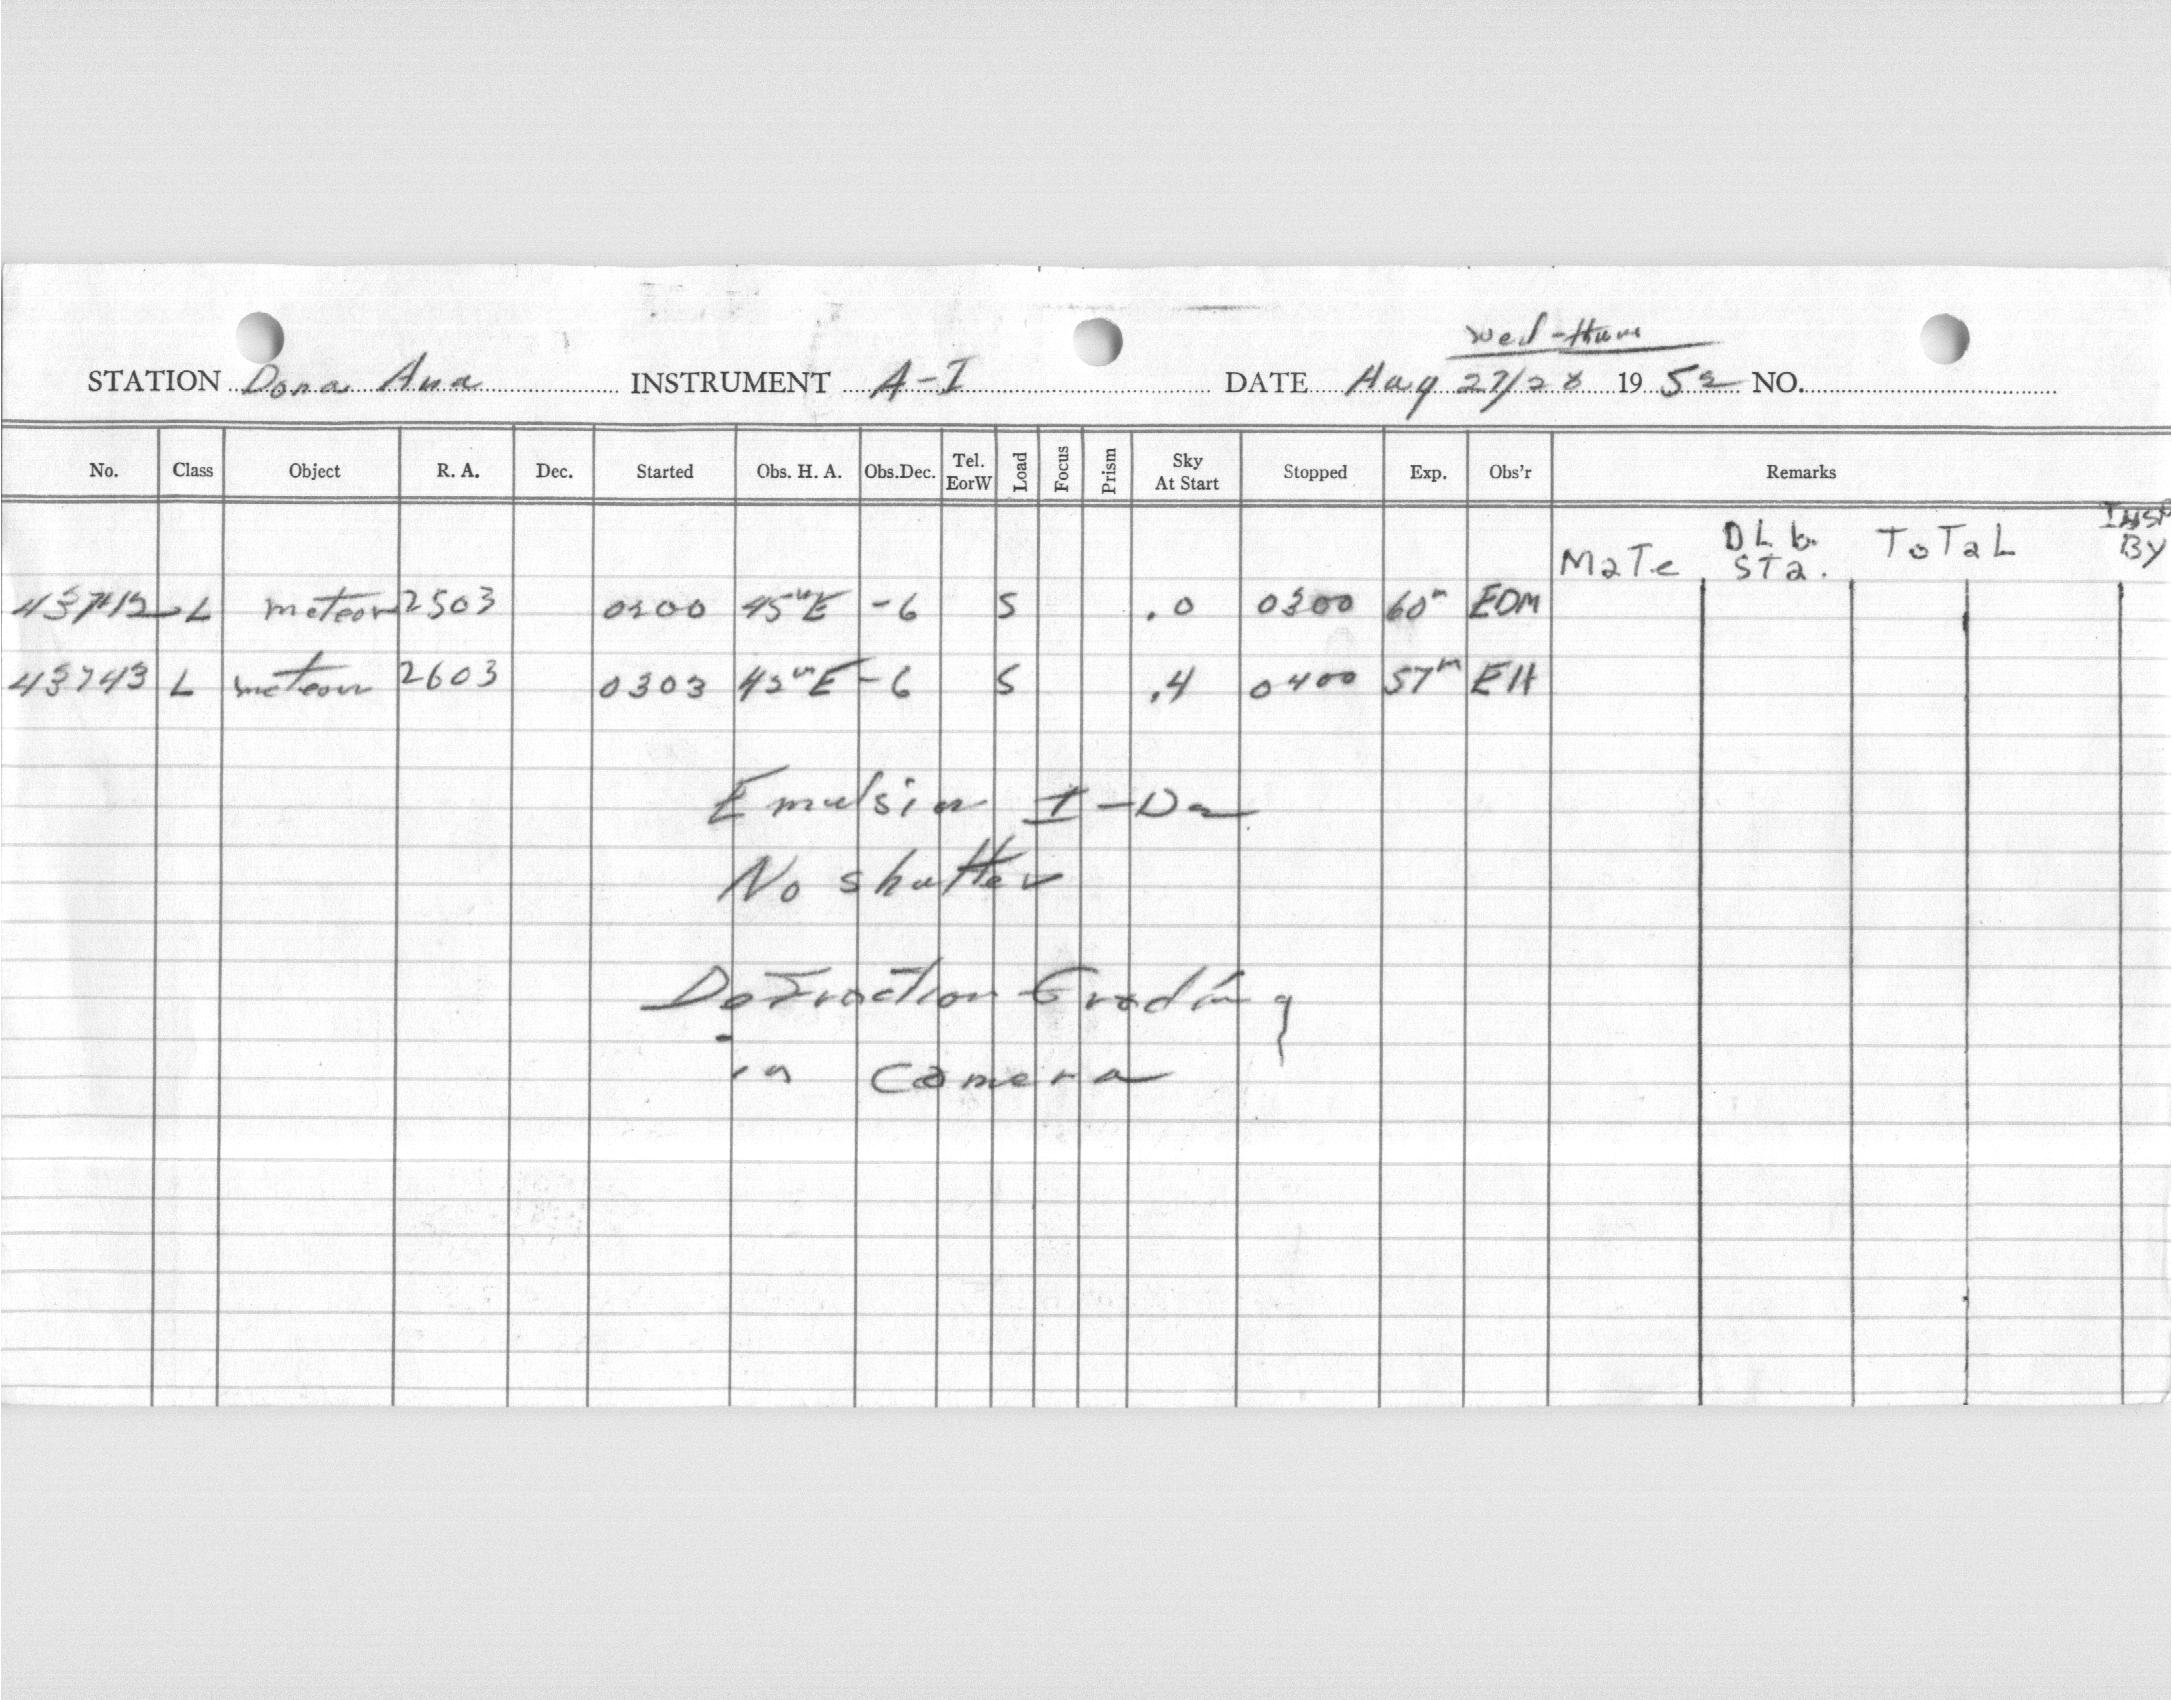 Wed-Thurs
STATION Dona Ana INSTRUMENT A-I DATE Aug 27/28 1952 NO.
No. Class Object R. A. Dec. Started Obs. H. A. Obs.Dec. Tel. EorW Load Focus Prism Sky At Start Stopped Exp. Obs'r Remarks
MaTe DLb. STa. ToTaL Insp BY
43742 L meteor 2503 0200 45ᵐE -6 S .0 0300 60ᵐ EDM
43743 L meteor 2603 0303 45ᵐE -6 S .4 0400 57ᵐ EH
Emulsion I-Da
No shutter
Defraction Grading
in Camera